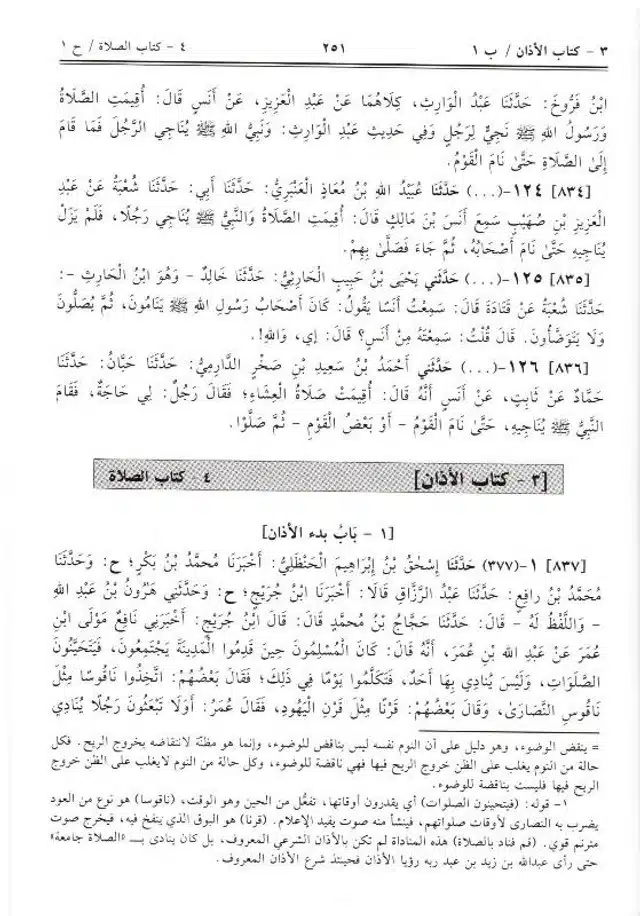 ٣ - كتاب الأذان / ب ١ ٢٥١ ٤ - كتاب الصلاة / ح ١
ابْنُ فَرُّوخَ: حَدَّثَنَا عَبْدُ الْوَارِثِ، كِلَاهُمَا عَنْ عَبْدِ الْعَزِيزِ، عَنْ أَنَسٍ قَالَ: أُقِيمَتِ الصَّلَاةُ
وَرَسُولُ اللهِ ﷺ نَجِيٌّ لِرَجُلٍ وَفِي حَدِيثِ عَبْدِ الْوَارِثِ: وَنَبِيُّ اللهِ ﷺ يُنَاجِي الرَّجُلَ فَمَا قَامَ
إِلَى الصَّلَاةِ حَتَّىٰ نَامَ الْقَوْمُ.
[٨٣٤] ١٢٤-(...) حَدَّثَنَا عُبَيْدُ اللهِ بْنُ مُعَاذٍ الْعَنْبَرِيُّ: حَدَّثَنَا أَبِي: حَدَّثَنَا شُعْبَةُ عَنْ عَبْدِ
الْعَزِيزِ بْنِ صُهَيْبٍ سَمِعَ أَنَسَ بْنَ مَالِكٍ قَالَ: أُقِيمَتِ الصَّلَاةُ وَالنَّبِيُّ ﷺ يُنَاجِي رَجُلًا، فَلَمْ يَزَلْ
يُنَاجِيهِ حَتَّىٰ نَامَ أَصْحَابُهُ، ثُمَّ جَاءَ فَصَلَّىٰ بِهِمْ.
[٨٣٥] ١٢٥-(...) حَدَّثَنِي يَحْيَى بْنُ حَبِيبٍ الْحَارِثِيُّ: حَدَّثَنَا خَالِدٌ - وَهُوَ ابْنُ الْحَارِثِ -:
حَدَّثَنَا شُعْبَةُ عَنْ قَتَادَةَ قَالَ: سَمِعْتُ أَنَسًا يَقُولُ: كَانَ أَصْحَابُ رَسُولِ اللهِ ﷺ يَنَامُونَ، ثُمَّ يُصَلُّونَ
وَلَا يَتَوَضَّأُونَ. قَالَ قُلْتُ: سَمِعْتَهُ مِنْ أَنَسٍ؟ قَالَ: إِي، وَاللهِ!.
[٨٣٦] ١٢٦-(...) حَدَّثَنِي أَحْمَدُ بْنُ سَعِيدِ بْنِ صَخْرٍ الدَّارِمِيُّ: حَدَّثَنَا حَبَّانُ: حَدَّثَنَا
حَمَّادٌ عَنْ ثَابِتٍ، عَنْ أَنَسٍ أَنَّهُ قَالَ: أُقِيمَتْ صَلَاةُ الْعِشَاءِ؛ فَقَالَ رَجُلٌ: لِي حَاجَةٌ، فَقَامَ
النَّبِيُّ ﷺ يُنَاجِيهِ، حَتَّىٰ نَامَ الْقَوْمُ - أَوْ بَعْضُ الْقَوْمِ - ثُمَّ صَلَّوْا.
[٣ - كتاب الأذان] ٤ - كتاب الصلاة
[١ - بَابُ بدء الأذان]
[٨٣٧] ١-(٣٧٧) حَدَّثَنَا إِسْحٰقُ بْنُ إِبْرَاهِيمَ الْحَنْظَلِيُّ: أَخْبَرَنَا مُحَمَّدُ بْنُ بَكْرٍ؛ ح: وَحَدَّثَنَا
مُحَمَّدُ بْنُ رَافِعٍ: حَدَّثَنَا عَبْدُ الرَّزَّاقِ قَالَا: أَخْبَرَنَا ابْنُ جُرَيْجٍ؛ ح: وَحَدَّثَنِي هَرُونُ بْنُ عَبْدِ اللهِ
- وَاللَّفْظُ لَهُ - قَالَ: حَدَّثَنَا حَجَّاجُ بْنُ مُحَمَّدٍ قَالَ: قَالَ ابْنُ جُرَيْجٍ: أَخْبَرَنِي نَافِعٌ مَوْلَى ابْنِ
عُمَرَ عَنْ عَبْدِ اللهِ بْنِ عُمَرَ، أَنَّهُ قَالَ: كَانَ الْمُسْلِمُونَ حِينَ قَدِمُوا الْمَدِينَةَ يَجْتَمِعُونَ، فَيَتَحَيَّنُونَ
الصَّلَوَاتِ، وَلَيْسَ يُنَادِي بِهَا أَحَدٌ، فَتَكَلَّمُوا يَوْمًا فِي ذٰلِكَ؛ فَقَالَ بَعْضُهُمْ: اتَّخِذُوا نَاقُوسًا مِثْلَ
نَاقُوسِ النَّصَارَىٰ، وَقَالَ بَعْضُهُمْ: قَرْنًا مِثْلَ قَرْنِ الْيَهُودِ، فَقَالَ عُمَرُ: أَوَلَا تَبْعَثُونَ رَجُلًا يُنَادِي
= ينقض الوضوء، وهو دليل على أن النوم نفسه ليس بناقض للوضوء، وإنما هو مظنّة لانتقاضه بخروج الريح. فكل
حالة من النوم يغلب على الظن خروج الريح فيها فهي ناقضة للوضوء، وكل حالة من النوم لايغلب على الظن خروج
الريح فيها فليست بناقضة للوضوء.
١- قوله: (فيتحينون الصلوات) أي يقدرون أوقاتها، تفعُّل من الحين وهو الوقت، (ناقوسا) هو نوع من العود
يضرب به النصارى لأوقات صلواتهم، فينشأ منه صوت يفيد الإعلام. (قرنا) هو البوق الذي ينفخ فيه، فيخرج صوت
مترنم قوي. (قم فناد بالصلاة) هذه المناداة لم تكن بالأذان الشرعي المعروف، بل كان ينادى بـ «الصلاة جامعة»
حتى رأى عبدالله بن زيد بن عبد ربه رؤيا الأذان فحينئذ شرع الأذان المعروف.